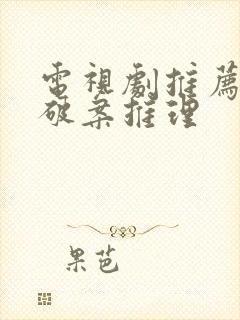 電視劇推薦
破案推理
果芭